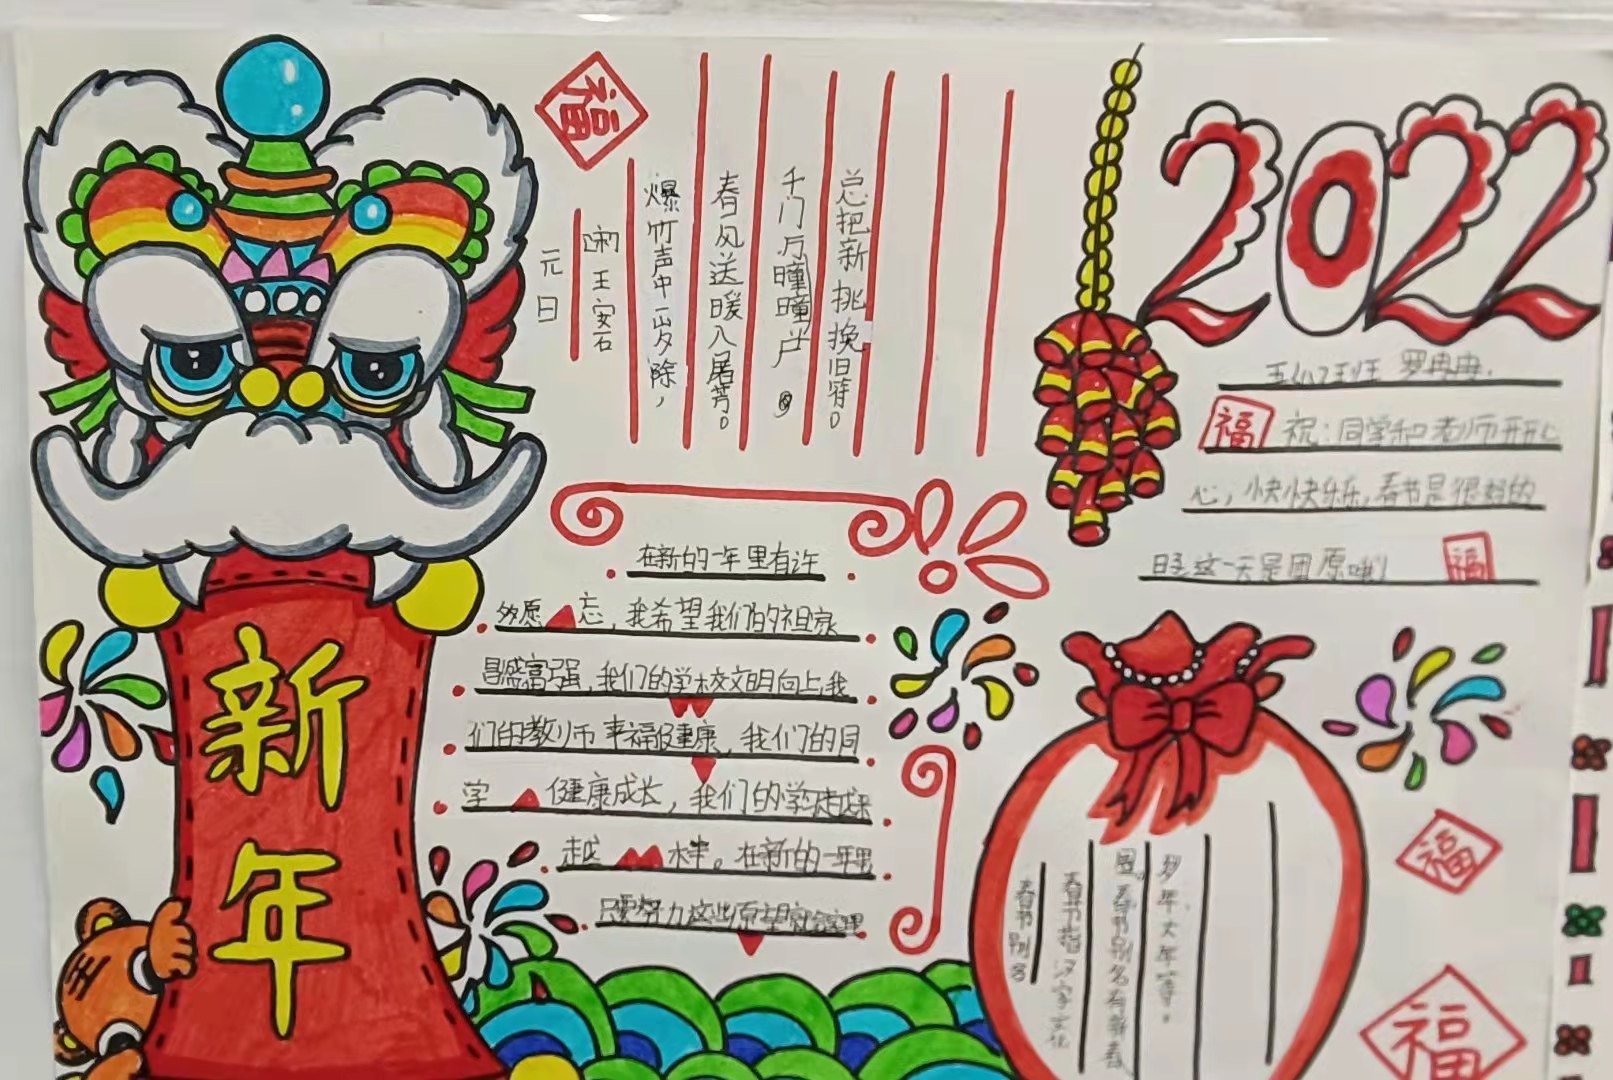 福
元日
宋 王安石
爆竹声中一岁除，
春风送暖入屠苏。
千门万曈曈户
总把新挑换旧符。
2022
罗冉冉.
福 祝:同学和老师开心
心，快快乐乐,春节是很好的
日子这一天是团原哦!
福
在新的一年里有许
多愿忘，我希望我们的祖京
昌盛富强，我们的学校文明向上,我
们的教师幸福健康，我们的同
学健康成长，我们的学走成来
越棒。在新的一年里
只要努力这些原望就会实里
新年
王
春节别名
春节指汉字文化
圈。春节别名有新春
岁年、大年等。
福
福